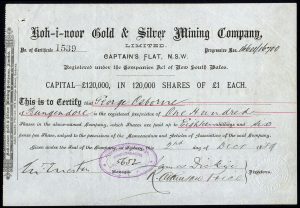 Koh-i-noor Gold & Silver Mining Company,
No. of Certificate 1539
LIMITED.
Progressive Nos.
CAPTAIN'S FLAT, N.S.W.
Registered under the Companies Act of New South Wales.
CAPITAL—£120,000, IN 120,000 SHARES OF £1 EACH.
This is to Certify that George Osborne
of Bungendore is the registered proprietor of One Hundred
Shares in the above-named Company, which Shares are paid up to Eighteen shillings and six
pence per Share, subject to the provisions of the Memorandum and Articles of Association of the said Company.
Given under the Seal of the Company, at Sydney, this 2nd day of 1889
5652
Manager.